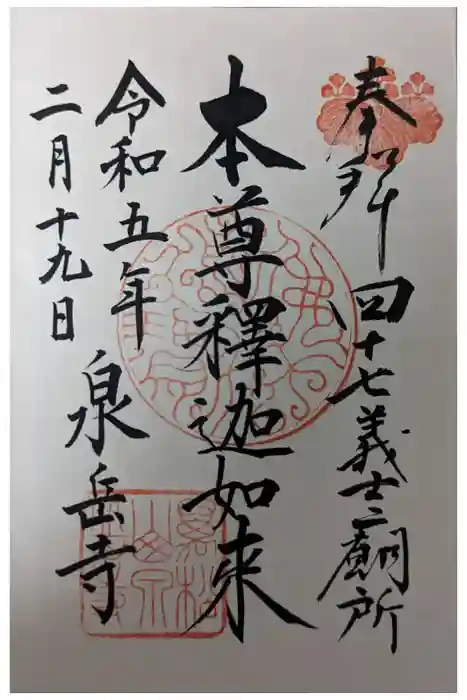 奉拝 四十七義士廟所
本尊釋迦如来
令和五年
二月十九日
泉岳寺